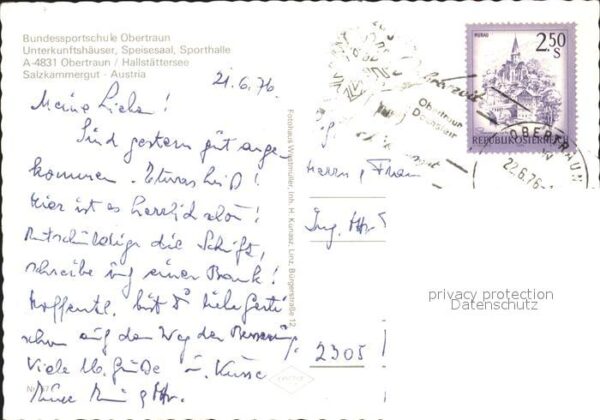 Bundessportschule Obertraun
Unterkunftshäuser, Speisesaal, Sporthalle
A-4831 Obertraun / Hallstättersee
Salzkammergut - Austria
21.6.76
Meine Liebe!
Sind gestern gut ange
kommen. Etwas heiß!
Hier ist es herrlich schön!
Entschuldige die Schrift,
schreibe auf einer Bank!
Hoffentl. bist Du liebe
schon auf dem Weg der Besserung.
Viele Grüße u. Küsse
Fotohaus Wiatmüller, Inh. H. Kunasz, Linz, Bürgerstraße 12
MURAU
2.50
S
REPUBLIK ÖSTERREICH
Obertraun
Dachstein
OBERTRAUN
22.6.76
Herrn u. Frau
Ing.
2305
privacy protection
Datenschutz